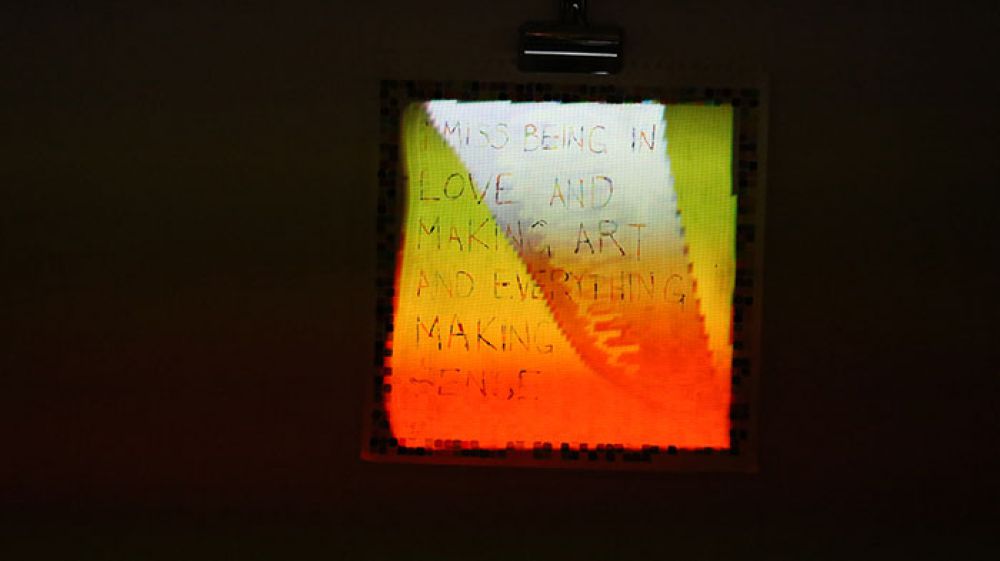 I MISS BEING IN
LOVE AND
MAKING ART
AND EVERYTHING
MAKING
SENSE